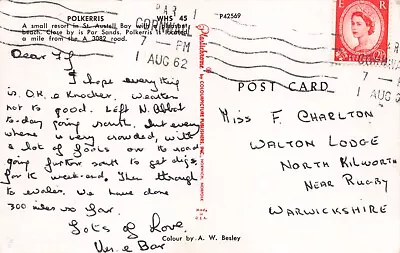 POLKERRIS WHS 45
A small resort in St. Austell Bay with a
beach. Close by is Par Sands. Polkerris is
a mile from the A 3082 road.
PAR
CORNWALL
7 - PM
1 AUG 62
P42569
PAR
CORNWALL
7 - PM
1 AUG 62
E R
POST CARD
Dear F
I hope everything
is O.K. Weather
not to good. Left N. Abbot
to-day going south. but every
where is very crowded, with
a lot of fools on the road
going further south to get digs
for the week-end. Then through
to Wales. We have done
300 miles so far.
Lots of Love.
Colour by A. W. Besley
MISS F. CHARLTON
WALTON LODGE
NORTH KILWORTH
NEAR RUGBY
WARWICKSHIRE